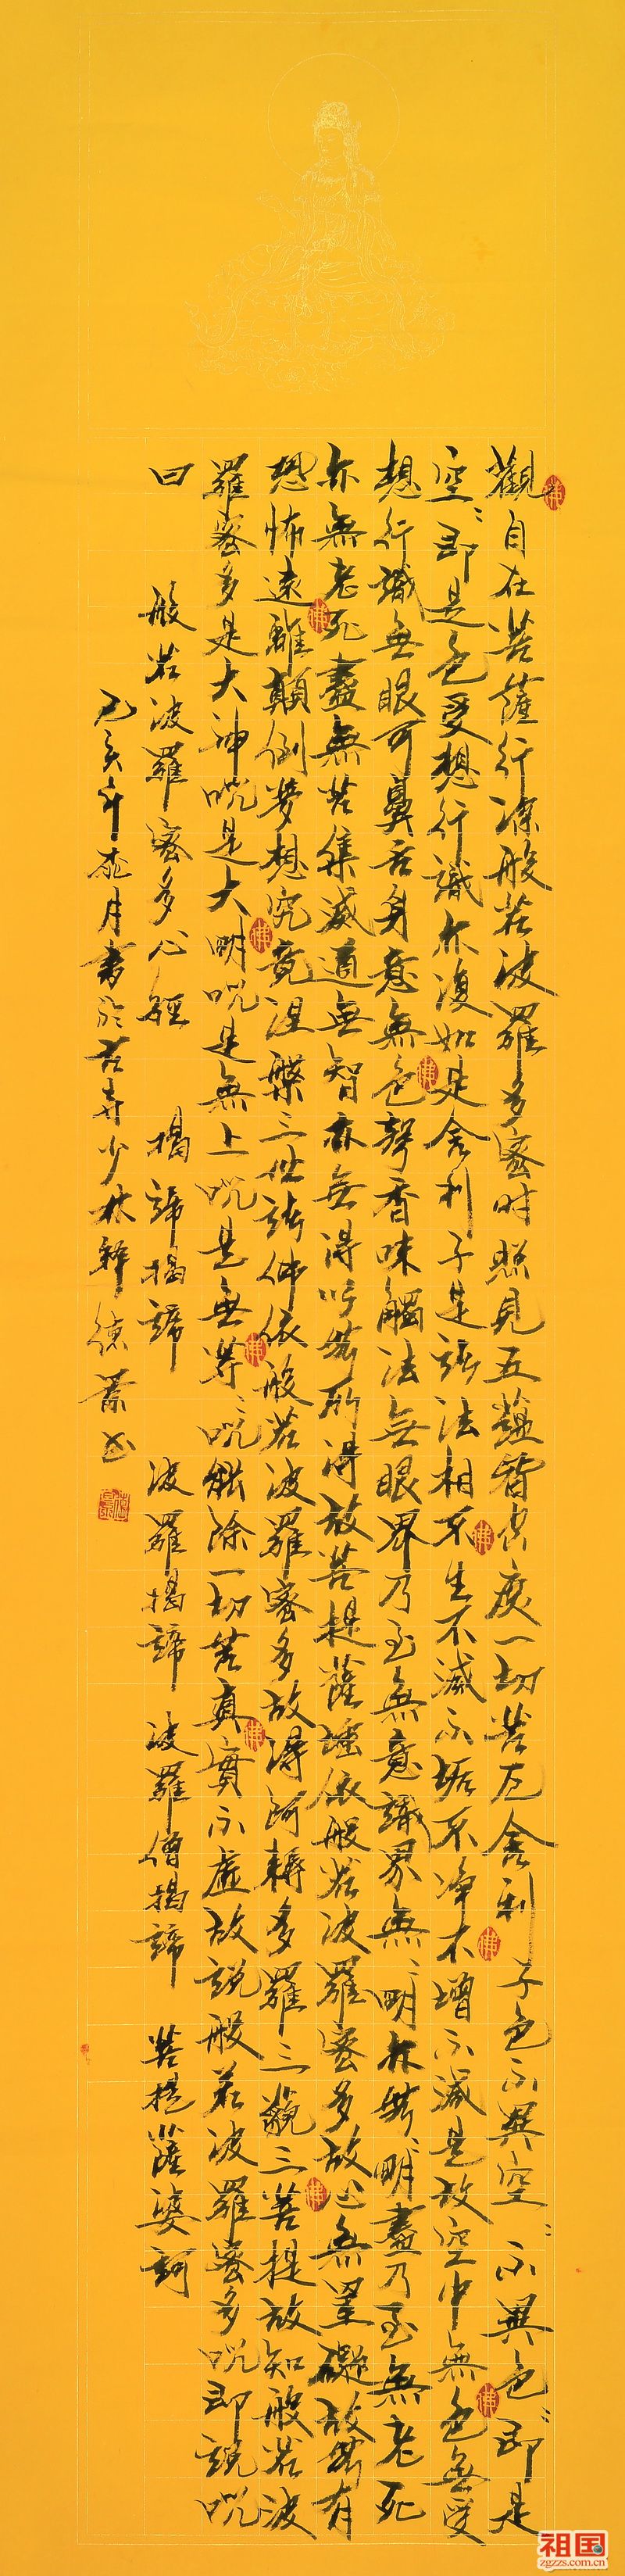 觀自在菩薩行深般若波羅多蜜時照見五蘊皆空度一切苦厄舍利子色不異空〻不異色〻即是
空〻即是色受想行識亦復如是舍利子是諸法相不生不滅不垢不净不增不減是故空中無色無受
想行識無眼耳鼻舌身意無色聲香味觸法無眼界乃至無意識界無〻明亦無〻明盡乃至無老死
亦無老死盡無苦集滅道無智亦無得以無所得故菩提薩埵依般若波羅蜜多故心無罣礙故無有
恐怖遠離顛倒夢想究竟涅槃三世諸佛依般若波羅蜜多故得阿耨多羅三藐三菩提故知般若波
羅蜜多是大神咒是大明咒是無上咒是無等〻咒能除一切苦真實不虛故說般若波羅蜜多咒即說咒
曰 般若波羅蜜多心經 揭諦揭諦 波羅揭諦 波羅僧揭諦 菩提薩婆訶
己亥年月書於古寺少林釋德
佛
佛
佛
佛
佛
佛
佛
佛
佛
佛
祖国
zgzzs.com.cn